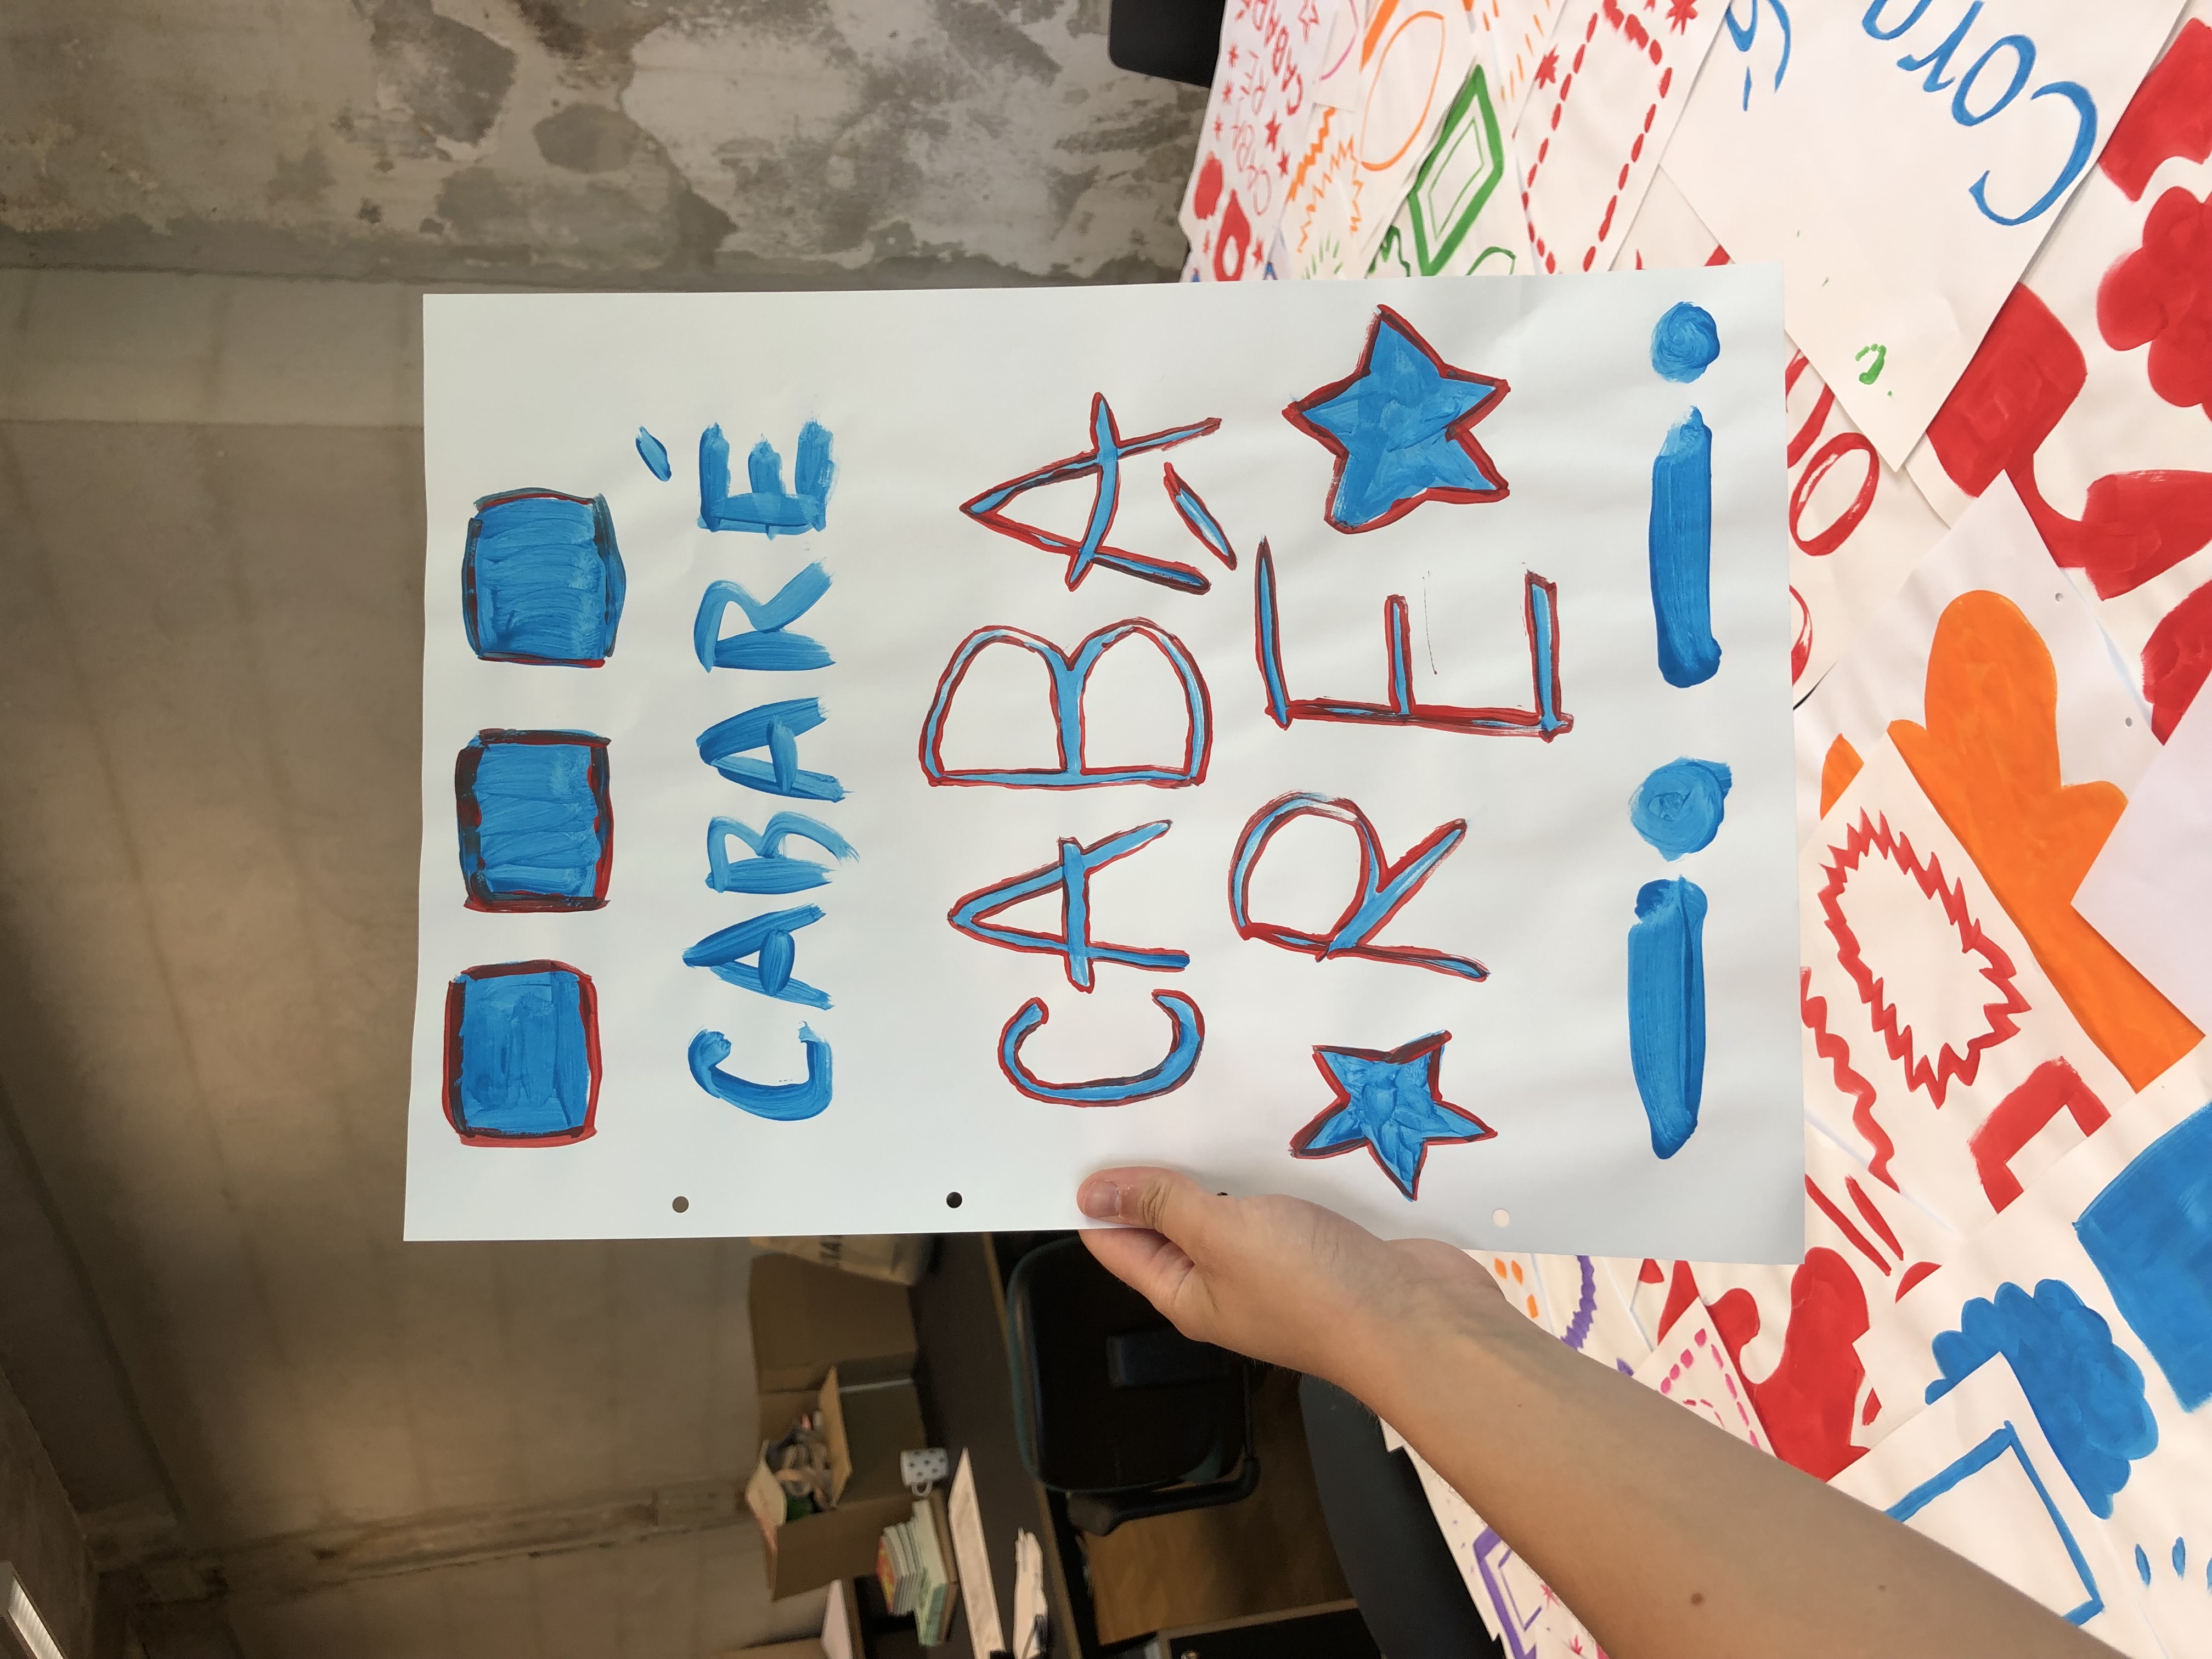 CABARÉ
CABA
RÉ
CABA
RÉ
CABARÉ